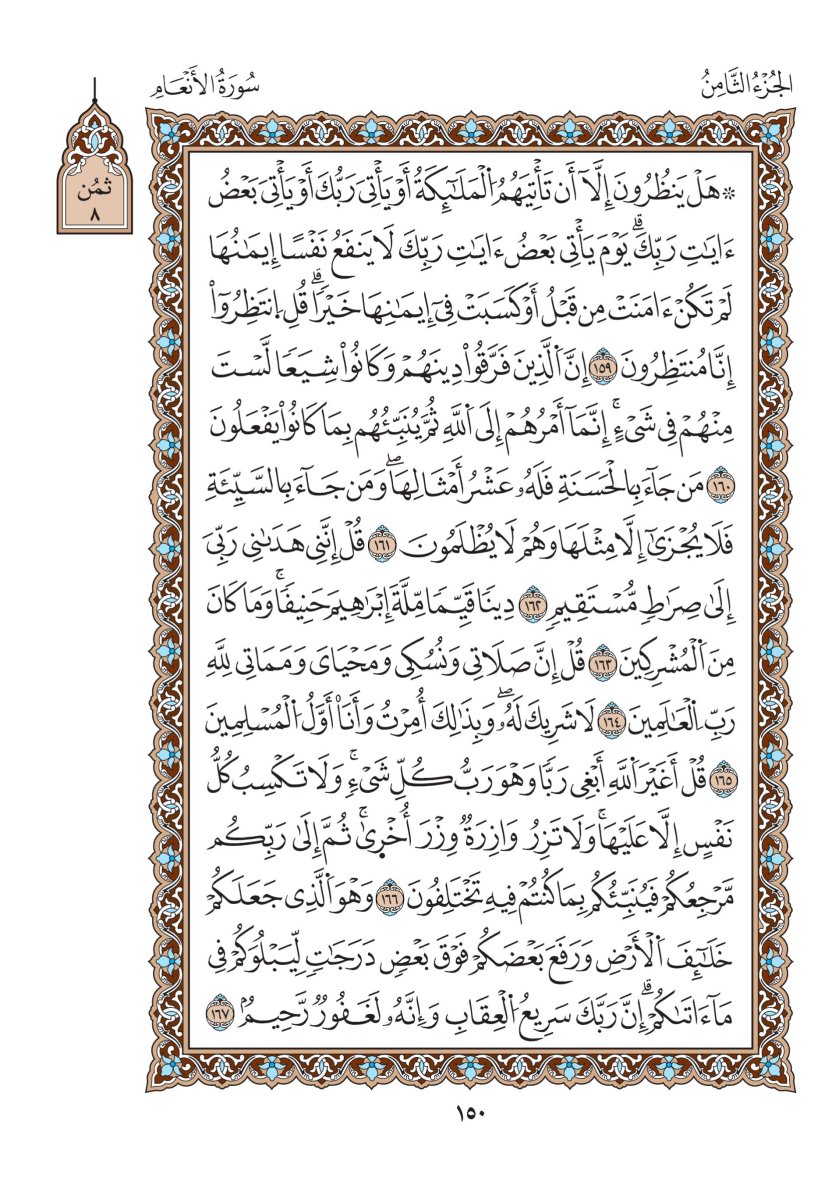 الجُزْءُ الثَّامِنُ
سُورَةُ الأَنْعَامِ
ثُمُن
٨
۞ هَلْ يَنظُرُونَ إِلَّآ أَن تَأْتِيَهُمُ اُ۬لْمَلَٰٓئِكَةُ أَوْ يَأْتِىَ رَبُّكَ أَوْ يَأْتِىَ بَعْضُ
ءَايَٰتِ رَبِّكَۗ يَوْمَ يَأْتِى بَعْضُ ءَايَٰتِ رَبِّكَ لَا يَنفَعُ نَفْسًا إِيمَٰنُهَا
لَمْ تَكُنْ ءَامَنَتْ مِن قَبْلُ أَوْ كَسَبَتْ فِىٓ إِيمَٰنِهَا خَيْرًاۗ قُلِ اِ۪نتَظِرُوٓاْ
إِنَّا مُنتَظِرُونَ ١٥٩ إِنَّ اَ۬لَّذِينَ فَرَّقُواْ دِينَهُمْ وَكَانُواْ شِيَعًا لَّسْتَ
مِنْهُمْ فِى شَىْءٍۚ إِنَّمَآ أَمْرُهُمْ إِلَى اَ۬للَّهِ ثُمَّ يُنَبِّئُهُم بِمَا كَانُواْ يَفْعَلُونَ
١٦٠ مَن جَآءَ بِالْحَسَنَةِ فَلَهُۥ عَشْرُ أَمْثَالِهَاۖ وَمَن جَآءَ بِالسَّيِّئَةِ
فَلَا يُجْزَىٰٓ إِلَّا مِثْلَهَا وَهُمْ لَا يُظْلَمُونَ ١٦١ قُلْ إِنَّنِى هَدَىٰنِى رَبِّىَ
إِلَىٰ صِرَٰطٍ مُّسْتَقِيمٍ ١٦٢ دِينًا قَيِّمًا مِّلَّةَ إِبْرَٰهِيمَ حَنِيفًاۚ وَمَا كَانَ
مِنَ اَ۬لْمُشْرِكِينَ ١٦٣ قُلْ إِنَّ صَلَاتِى وَنُسُكِى وَمَحْيَاىَ وَمَمَاتِى لِلَّهِ
رَبِّ اِ۬لْعَٰلَمِينَ ١٦٤ لَا شَرِيكَ لَهُۥۖ وَبِذَٰلِكَ أُمِرْتُ وَأَنَا۠ أَوَّلُ اُ۬لْمُسْلِمِينَ
١٦٥ قُلْ أَغَيْرَ اَ۬للَّهِ أَبْغِى رَبًّا وَهْوَ رَبُّ كُلِّ شَىْءٍۚ وَلَا تَكْسِبُ كُلُّ
نَفْسٍ إِلَّا عَلَيْهَاۚ وَلَا تَزِرُ وَازِرَةٌ وِزْرَ أُخْر۪ىٰۚ ثُمَّ إِلَىٰ رَبِّكُم
مَّرْجِعُكُمْ فَيُنَبِّئُكُم بِمَا كُنتُمْ فِيهِ تَخْتَلِفُونَ ١٦٦ وَهْوَ اَ۬لَّذِى جَعَلَكُمْ
خَلَٰٓئِفَ اَ۬لْأَرْضِ وَرَفَعَ بَعْضَكُمْ فَوْقَ بَعْضٍ دَرَجَٰتٍ لِّيَبْلُوَكُمْ فِى
مَآ ءَاتَىٰكُمْۗ إِنَّ رَبَّكَ سَرِيعُ اُ۬لْعِقَابِ وَإِنَّهُۥ لَغَفُورٌ رَّحِيمٌۢ ١٦٧
١٥٠